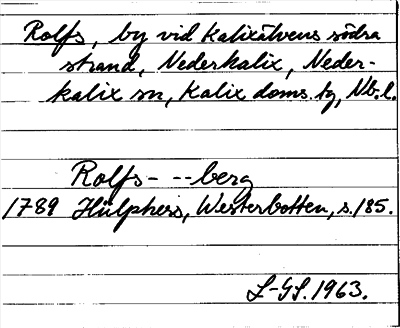 Rolfs, by vid Kalixälvens södra
strand, Nederkalix, Neder-
kalix sn, Kalix doms. tg, Nb. l.
Rolfs- --berg
1789 Hülphers, Westerbotten, s. 185.
L-GS. 1963.